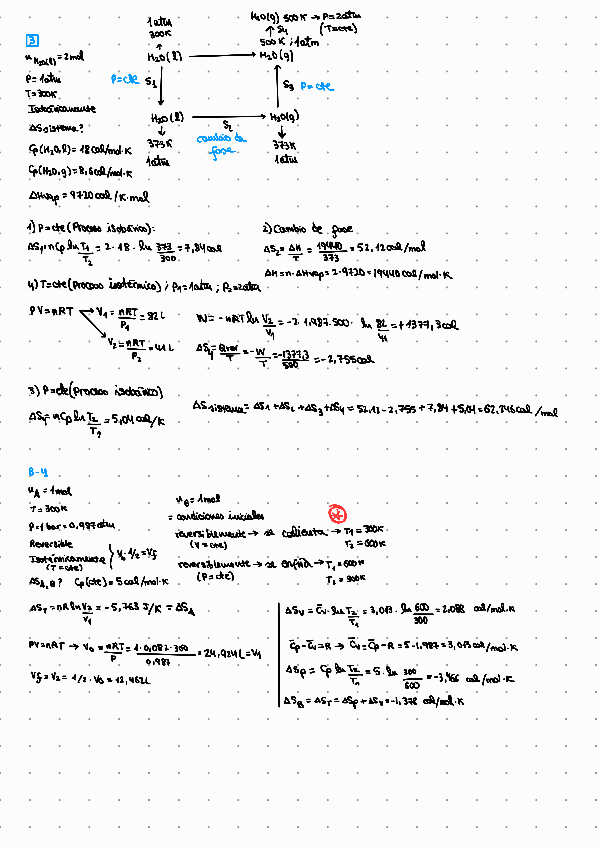 3
n H2O(l) = 2mol
P = 1atm
T = 300K
Isotérmicamente
ΔSsistema?
Cp(H2O,l) = 18cal/mol·K
Cp(H2O,g) = 8,6cal/mol·K
ΔHvap = 9720cal/K·mol
1atm
300K
H2O(l)
H2O(g) 500K → P=2atm
S4 (T=cte)
500K; 1atm
H2O(g)
P=cte S1
S3 P=cte
H2O(l)
S2
H2O(g)
cambio de
fase
373K
1atm
373K
1atm
1) P=cte (Proceso isobárico):
ΔS1=nCp ln T1/T2 = 2·18·ln 373/300 = 7,84cal
2) Cambio de fase
ΔS2 = ΔH/T = 19440/373 = 52,12cal/mol
ΔH = n·ΔHvap = 2·9720 = 19440cal/mol·K
4) T=cte (Proceso isotérmico); P1=1atm; P2=2atm
PV=nRT
V1 = nRT/P1 = 82L
V2 = nRT/P2 = 41L
W = -nRT ln V2/V1 = -2·1,987·500· ln 82/41 = +1377,3cal
ΔS4 = Qrev/T = -W/T = -1377,3/500 = -2,755cal
3) P=cte (Proceso isobárico)
ΔS3 = nCp ln T2/T1 = 5,04cal/K
ΔSsistema = ΔS1+ΔS2+ΔS3+ΔS4 = 52,12-2,755+7,84+5,04=62,246cal/mol
B-4
nA = 1mol
T = 300K
P=1bar=0,987atm
Reversible
Isotérmicamente
(T=cte)
V0 1/2 = Vf
ΔSA,B? Cp(cte) = 5cal/mol·K
nB = 1mol
= condiciones iniciales
reversiblemente → se calienta → T1 = 300K
(V=cte) T2 = 600K
reversiblemente → se enfría → T1 = 600K
(P=cte) T2 = 300K
ΔST = nR ln V2/V1 = -5,763 J/K = ΔSA
PV=nRT → V0 = nRT/P = 1·0,082·300/0,987 = 24,924L = V1
Vf = V2 = 1/2·V0 = 12,462L
ΔSV = Cv·ln T2/T1 = 3,013·ln 600/300 = 2,088 cal/mol·K
Cp-Cv=R → Cv=Cp-R = 5-1,987=3,013cal/mol·K
ΔSp = Cp ln T2/T1 = 5·ln 300/600 = -3,466 cal/mol·K
ΔSB = ΔST = ΔSp+ΔSV = -1,378 cal/mol·K